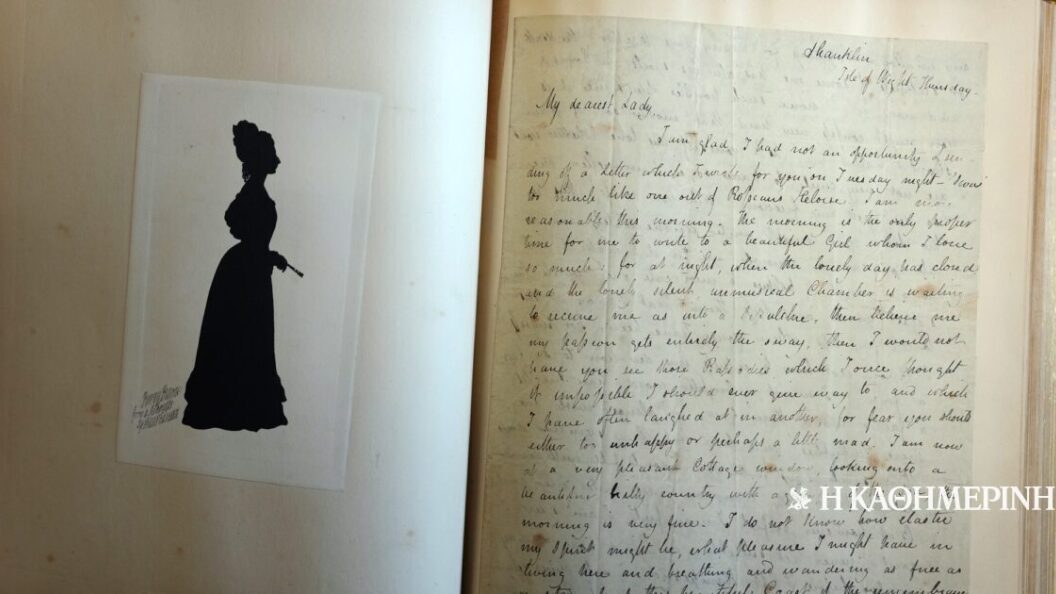 Shanklin
Isle of Wight Thursday
My dearest Lady,
I am glad I had not an opportunity of sen
ding off a Letter which I wrote for you on Tuesday night— 'twas
too much like one out of Rousseau's Heloise. I am more
reasonable this morning. The morning is the only proper
time for me to write to a beautiful Girl whom I love
so much: for at night, when the lonely day has closed
and the lonely silent unmusical Chamber is waiting
to receive me as into a Sepulchre, then believe me
my passion gets entirely the sway, then I would not
have you see those Rapsodies which I once thought
it impossible I should ever give way to and which
I have often laughed at in another, for fear you should
either too unhappy or perhaps a little mad. I am now
at a very pleasant Cottage window, looking onto a
beautiful hilly country with a
morning is very fine. I do not know how elastic
my spirit might be, what pleasure I might have in
living here and breathing and wandering as free as
Η ΚΑΘΗΜΕΡΙΝΗ